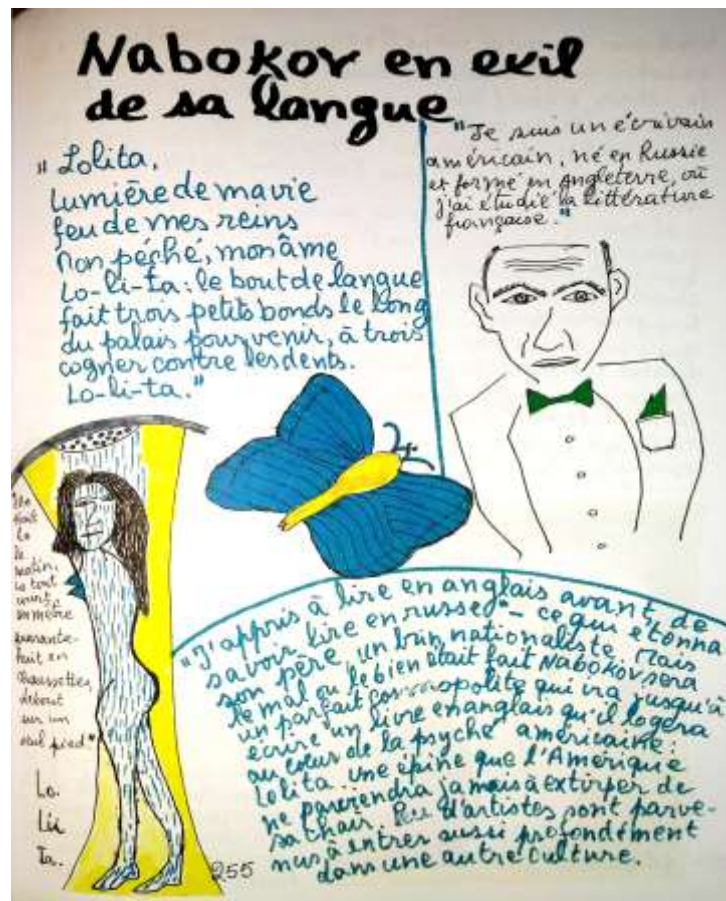 Nabokov en exil
de sa langue
"Lolita,
lumière de ma vie
feu de mes reins
mon péché, mon âme
Lo-li-ta: le bout de langue
fait trois petits bonds le long
du palais pour venir, à trois
cogner contre les dents.
Lo-li-ta."
"Je suis un écrivain
américain, né en Russie
et formé en Angleterre, où
j'ai étudié la littérature
française."
Elle
était
Lo
le
matin,
Lo tout
court,
un mètre
quarante-
huit en
chaussettes,
debout
sur un
seul pied"
Lo.
Lii
Ta.
"J'appris à lire en anglais avant de
savoir lire en russe" – ce qui étonna
son père, un brin nationaliste. Mais
le mal ou le bien était fait Nabokov sera
un parfait cosmopolite qui ira jusqu'à
écrire un livre en anglais qu'il logera
au cœur de la psyché américaine:
Lolita. une épine que l'Amérique
ne parviendra jamais à extirper de
sa chair. Peu d'artistes sont parve-
nus à entrer aussi profondément
dans une autre culture.
255